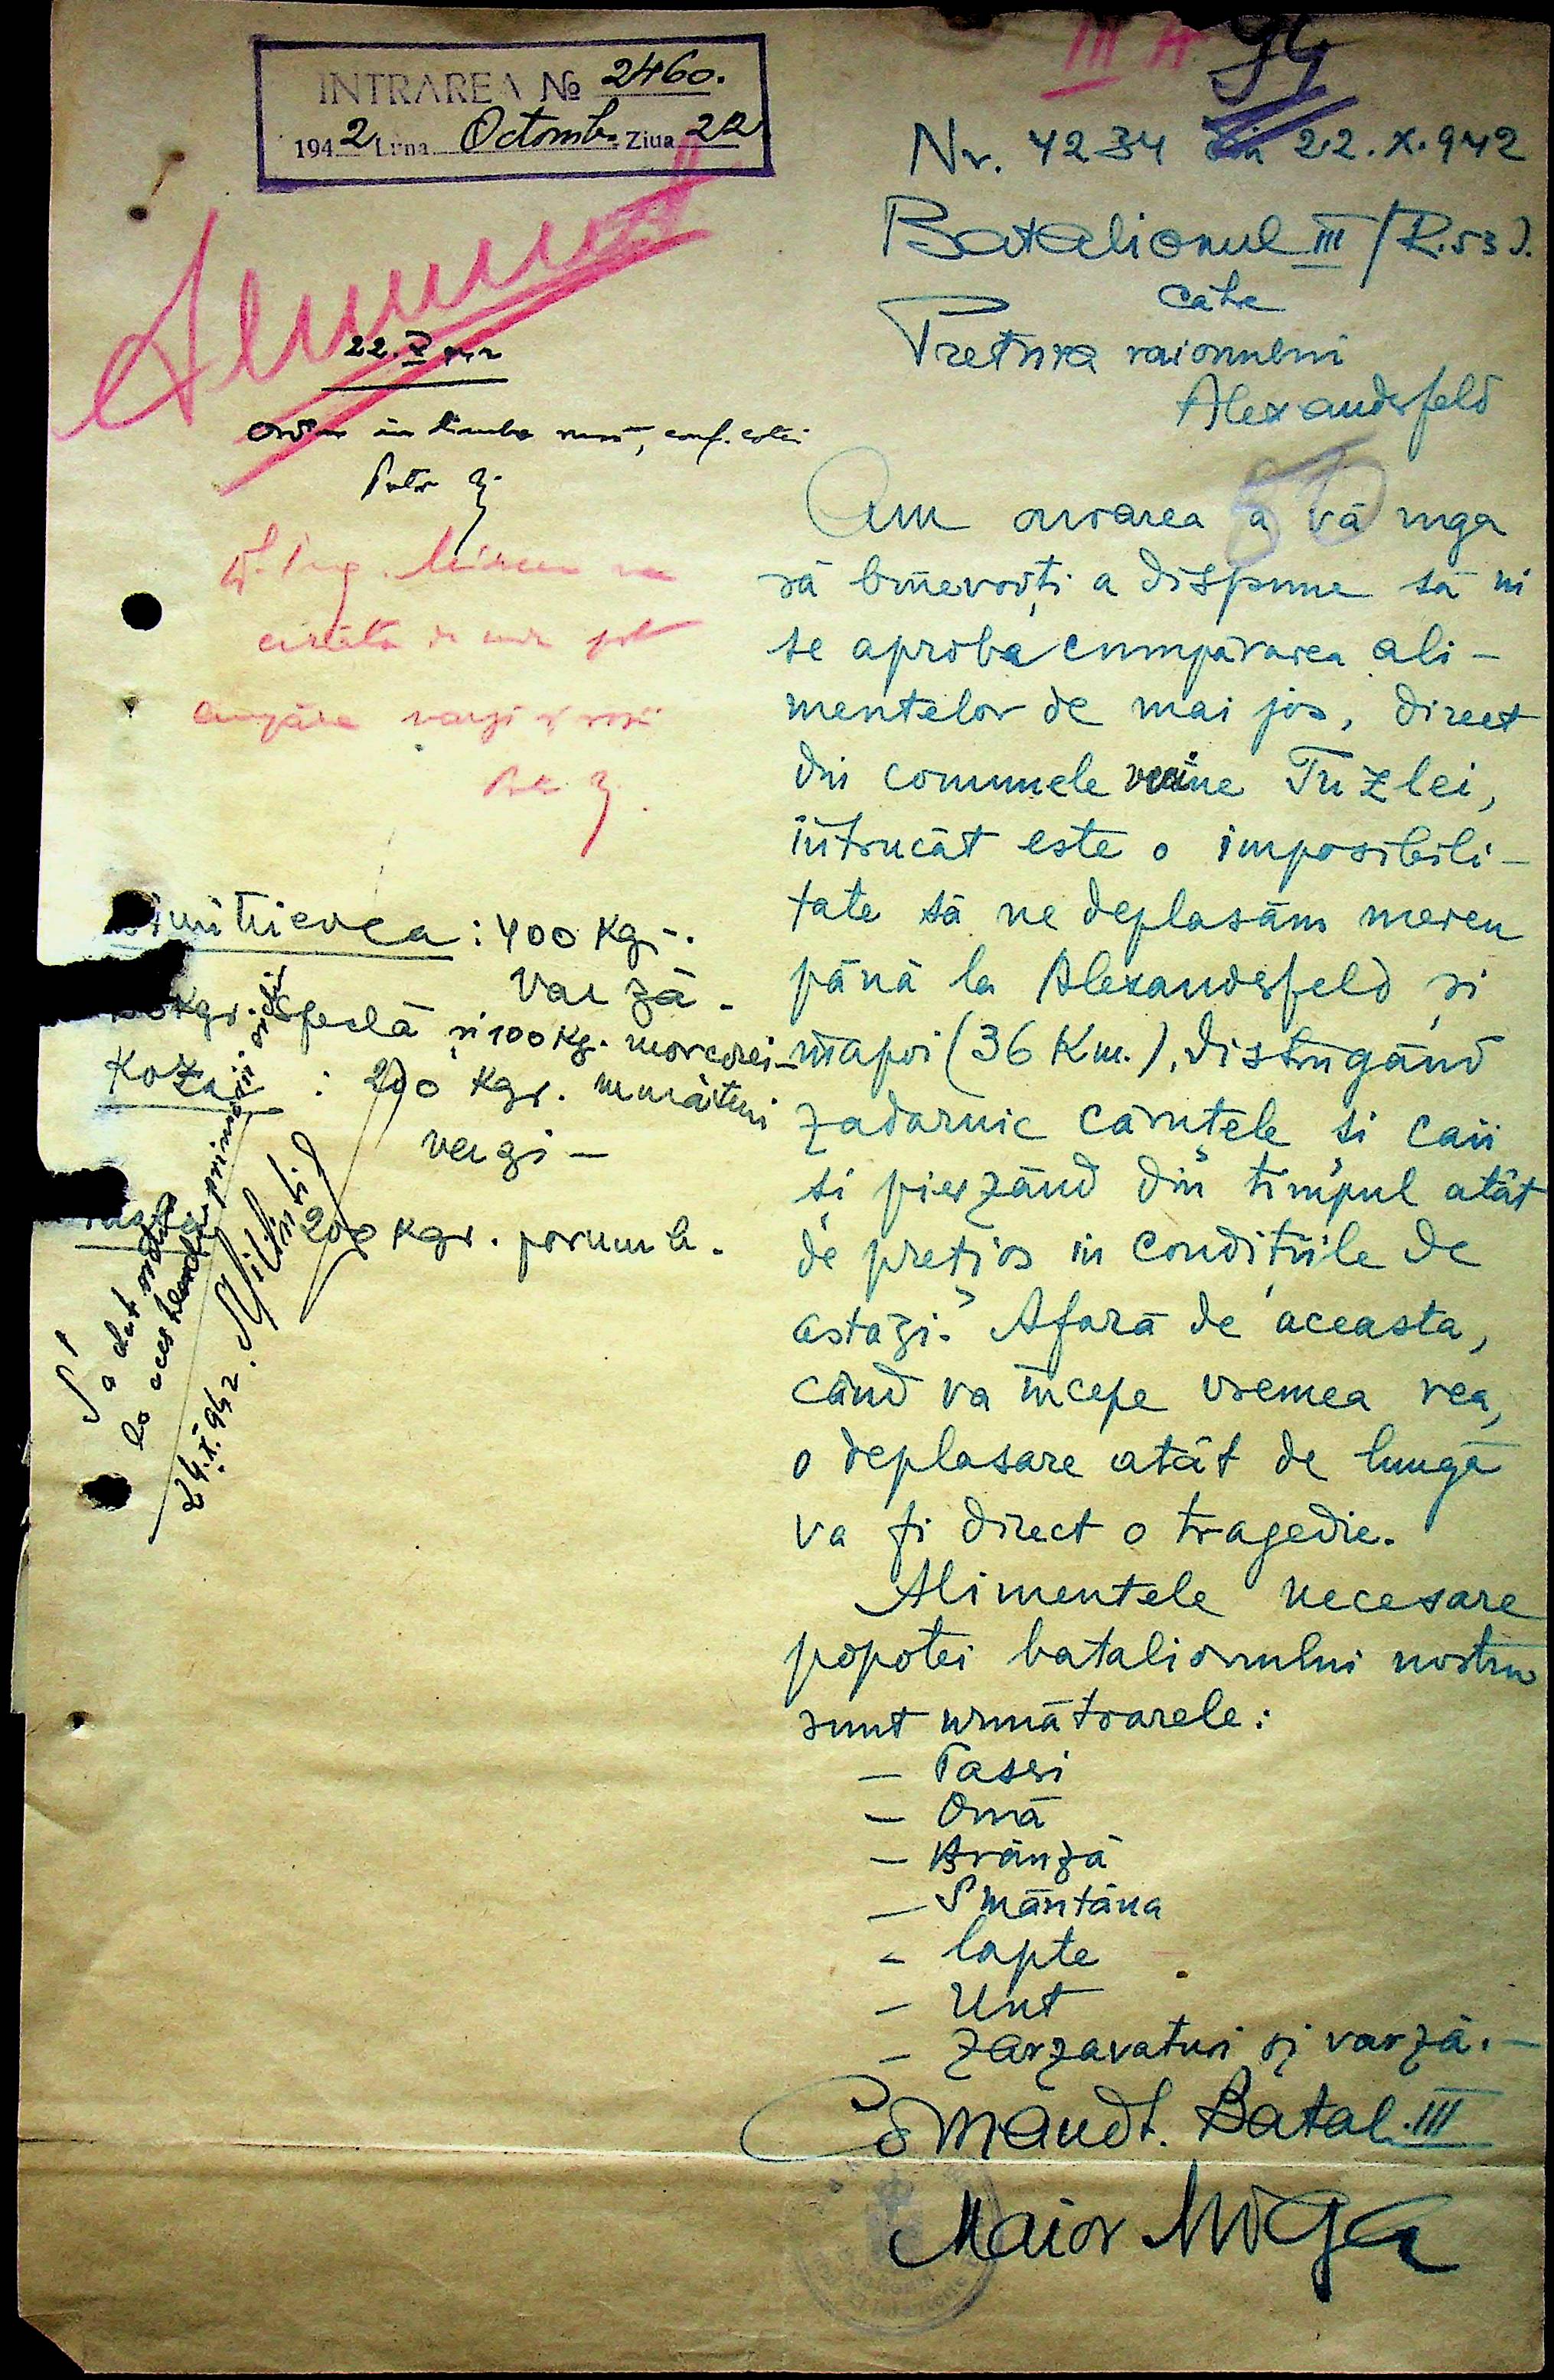 INTRAREA № 2460.
1942 Luna Octomb. Ziua 22
III A
Nr. 4234 din 22.X.942
Batalionul III/R.53 J.
către
Pretura raionului
Alexanderfeld
Am onoarea a vă ruga
să binevoiți a dispune să ni
se aproba cumpărarea ali-
mentelor de mai jos, direct
din comunele vecine Tuzlei,
întrucât este o imposibili-
tate să ne deplasăm mereu
până la Alexanderfeld și
înapoi (36 Km.), distrugând
zadarnic căruțele și caii
și pierzând din timpul atât
de prețios în condițiile de
astăzi. Afară de aceasta,
când va începe vremea rea,
o deplasare atât de lungă
va fi direct o tragedie.
Alimentele necesare
popotei batalionului nostru
sunt următoarele:
- Paseri
- Ouă
- Brânză
- Smântâna
- lapte
- Unt
- Zarzavaturi și varză.-
Comandt. Batal. III
Maior
22.X.942
Ordin în limba rusă, conf. cotei
: 400 Kg-.
Varză-
Kgr. sfeclă și 100 Kg. morcovi-
: 200 Kgr. murături
vergi-
200 Kgr. porumb.
S'a dat ordin
la aceste primării
24.X.942.